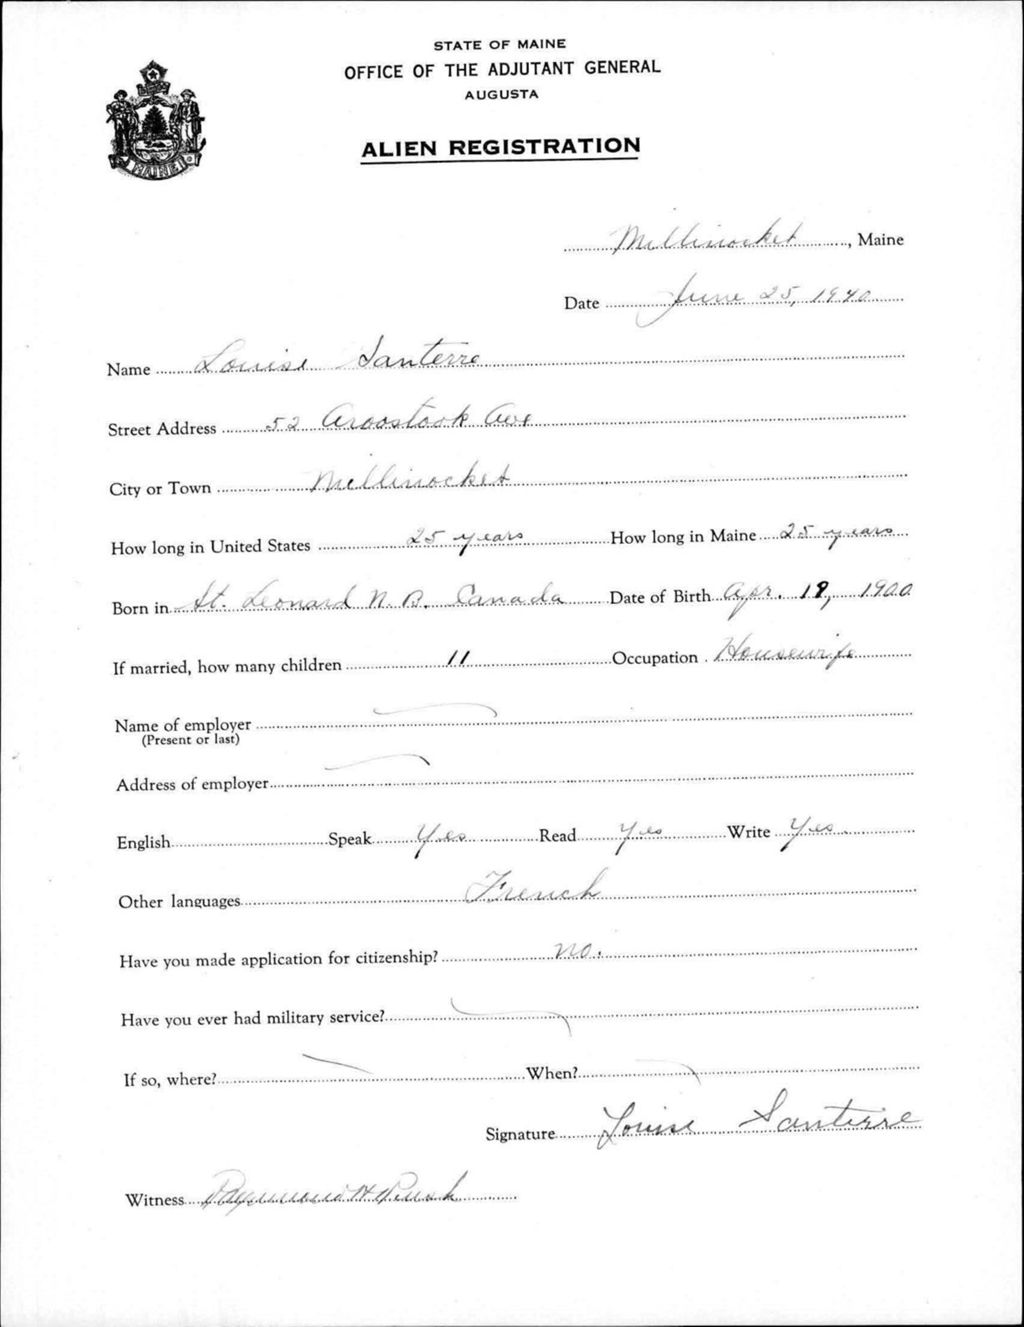 STATE OF MAINE
OFFICE OF THE ADJUTANT GENERAL
AUGUSTA
ALIEN REGISTRATION
MAINE
Millinocket, Maine
Date June 25, 1940
Name Louise Santerre
Street Address 52 Aroostook Ave
City or Town Millinocket
How long in United States 25 years How long in Maine 25 years
Born in St. Leonard N. B. Canada Date of Birth Apr. 19, 1900
If married, how many children 11 Occupation Housewife
Name of employer
(Present or last)
Address of employer
English Speak Yes Read Yes Write Yes
Other languages French
Have you made application for citizenship? no.
Have you ever had military service?
If so, where? When?
Signature Louise Santerre
Witness Raymond H Rush